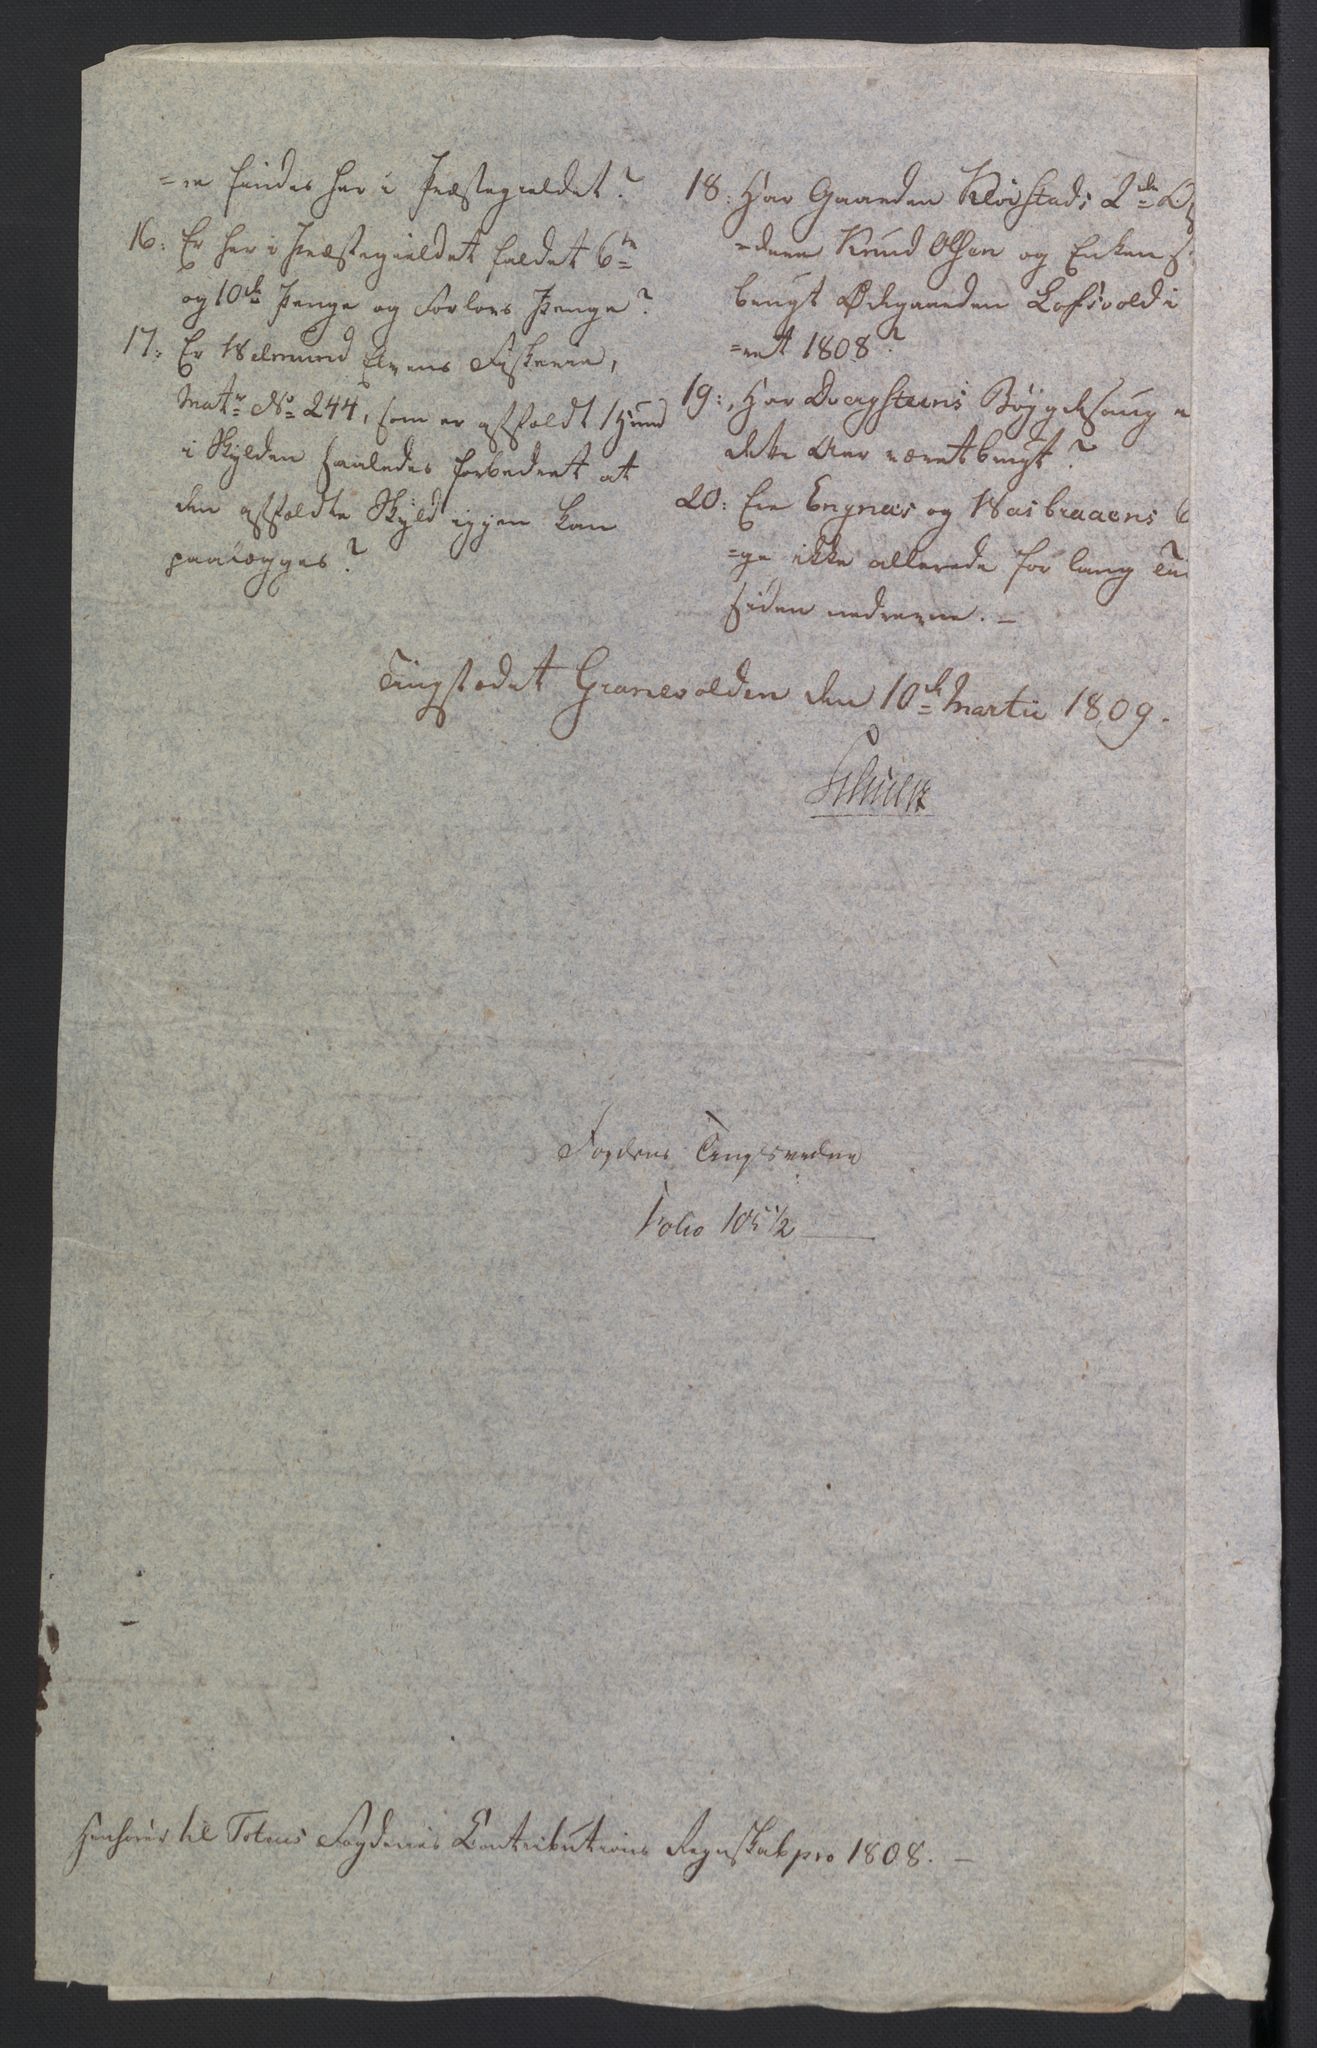 =re findes her i Præstegieldet?
16: Er her i Præstegieldet faldet 6te
og 10de Penge og Forlovs Penge?
17: Er Walmund Elvens Fiskerie,
Matr No 244, som er affældt 1 Hund
i Skylden saaledes forbedret at
den affældte Skyld igjen kan
paalægges?
18: Har Gaarden Kløvstads 2de
=dere Knud Olsen og Enken
brugt Ødegaarden Lofsvold i
=ret 1808?
19: Har Dvergsteens Bøygdesaug
dette Aar været brugt?
20: Ere Engnæs og Wasbraaens
=ge ikke allerede for lang
siden nedrevne. —
Tingstedet Granevolden den 10de Martii 1809.
Fogdens Tingsvidne
Folio 105 1/2
Henhører til Totens Fogderies Contributions Regnskab pro 1808. —